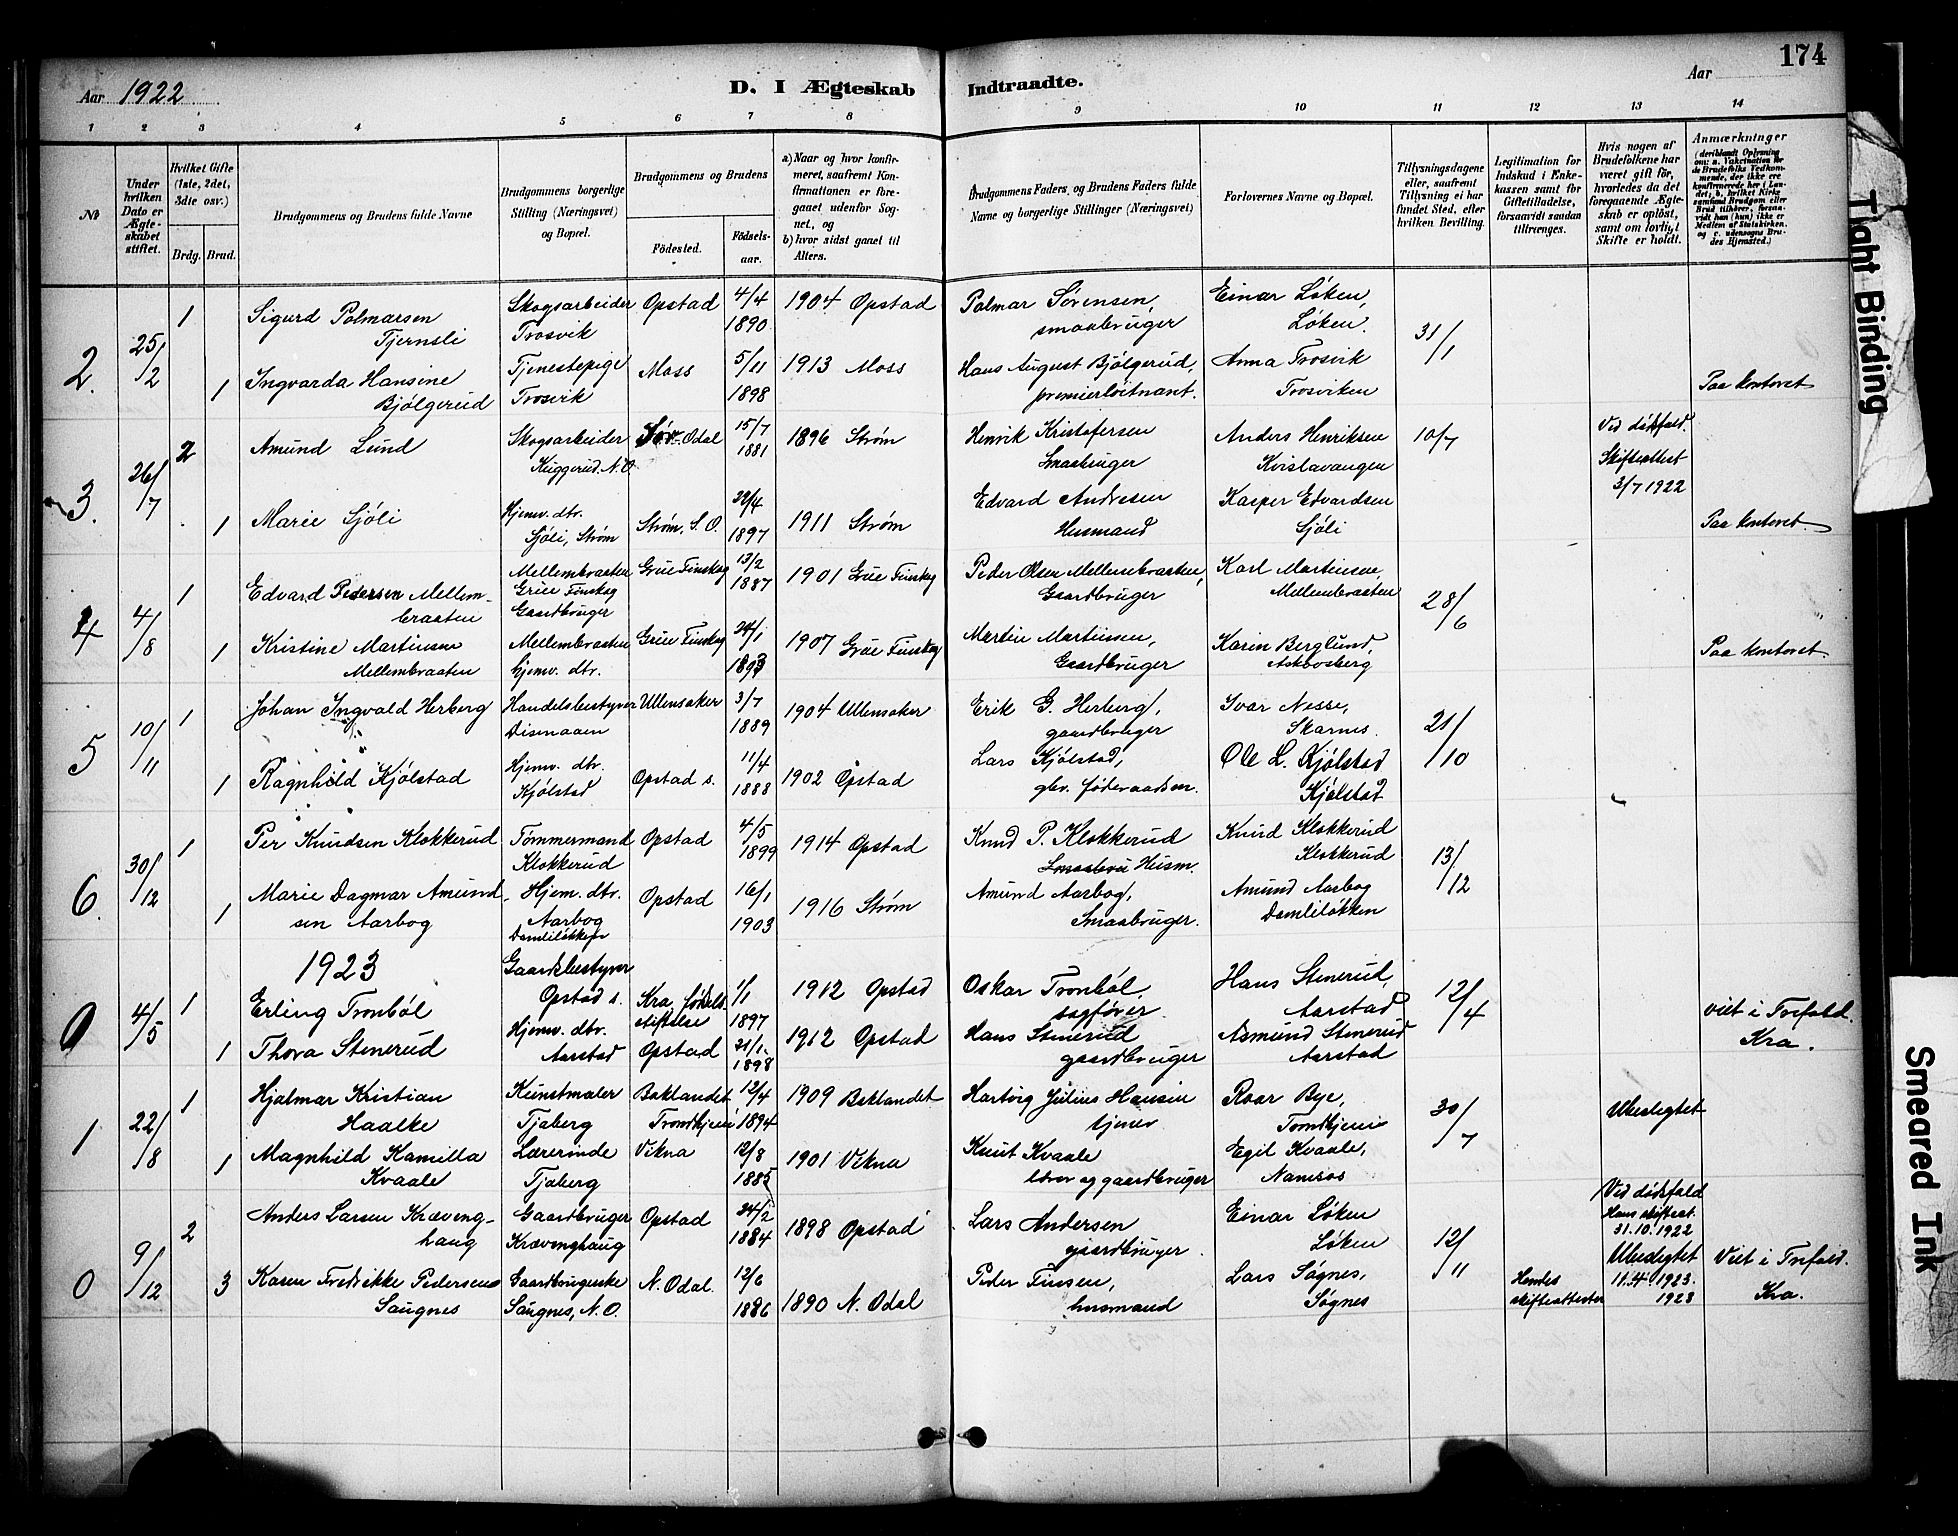 174
Aar 1922
D. I Ægteskab Indtraadte.
Aar
1 2 3 4 5 6 7 8 9 10 11 12 13 14
No
Under hvilken Dato er Ægteskabet stiftet.
Hvilket Gifte (1ste, 2det, 3die osv.)
Brdg. Brud.
Brudgommens og Brudens fulde Navne
Brudgommens borgerlige Stilling (Næringsvei) og Bopæl.
Brudgommens og Brudens
Fødested.
Fødselsaar.
a) Naar og hvor konfirmeret, saafremt Konfirmationen er foregaaet udenfor Sognet, og
b) hvor sidst gaaet til Alters.
Brudgommens Faders, og Brudens Faders fulde Navne og borgerlige Stillinger (Næringsvei)
Forlovernes Navne og Bopæl.
Tillysningsdagene eller, saafremt Tillysning ei har fundet Sted, efter hvilken Bevilling.
Legitimation for Indskud i Enkekassen samt for Giftetilladelse, forsaavidt saadan tiltrænges.
Hvis nogen af Brudefolkene har været gift før, hvorledes da det foregaaende Ægteskab er opløst, samt om lovligt Skifte er holdt.
Anmærkninger
(deriblandt Oplysning om: a. Vakcination for de Brudefolks Vedkommende, der ikke ere konfirmerede her i Landet; b. hvilket Kirkesamfund Brudgom eller Brud tilhører, forsaavidt han (hun) ikke er Medlem af Statskirken, og c. udensogns Brudes Hjemsted.)
2. 25/2 1 Sigurd Palmarsen Skogsarbeider Opstad 4/4 1904 Opstad Palmar Sørensen, Einar Løken, 31/1
Tjernsli Trosvik 1890 smaabruger Løken.
1 Ingvarda Hansine Tjenestepige Moss 5/11 1913 Moss Hans August Bjølgerud, Anna Trosvik
Bjølgerud Trosvik 1898 premierløitnant. Trosviken Paa kontoret
3. 26/7 2 Amund Lund Skogsarbeider Sør-Odal 15/7 1896 Strøm Henrik Kristofersen Anders Henriksen 10/7 Ved dødsfald.
Kuggerud, N.O. 1881 Smaabruger Kvislavangen Skifteattest
3/7 1922
1 Marie Sjøli Hjemv. dtr. Strøm, S.O. 22/4 1911 Strøm Edvard Andresen Kasper Edvardsen
Sjøli, Strøm 1897 Husmand Sjøli Paa kontoret
4 4/8 1 Edvard Pedersen Mellem- Mellembraaten Grue Finskog 13/2 1901 Grue Finskog Peder Olsen Mellembraaten, Karl Martinsen, 28/6
braaten Grue Finskog 1887 Gaardbruger Mellembraaten
Gaardbruger
1 Kristine Martinsen Mellembraaten Grue Finskog 24/1 1907 Grue Finskog Martin Martinsen, Karin Berglund,
Mellembraaten hjemv. dtr. 1893 Gaardbruger Askosberg Paa kontoret.
5 10/11 1 Johan Ingvald Herberg Handelsbestyrer Ullensaker 3/7 1904 Ullensaker Erik G. Herberg, Ivar Nesse, 21/10
Disenaaen 1889 gaardbruger Skarnes.
1 Ragnhild Kjølstad Hjemv. dtr. Opstad s. 11/4 1902 Opstad Lars Kjølstad, Ole L. Kjølstad
Kjølstad 1888 Kjølstad
6. 30/12 1 Per Knudsen Klokkerud Tømmermand Opstad 4/5 1914 Opstad Knud P. Klokkerud Knud Klokkerud 13/12
Klokkerud 1899 Husm. Klokkerud
1 Marie Dagmar Amund- Hjem. dtr. Opstad 16/1 1916 Strøm Amund Aarbog, Amund Aarbog
sen Aarbog Aarbog 1903 Smaabruger. Damliløkken
Damliløkken
1923
0 4/5 1 Erling Tronbøl Gaardsbestyrer Kra. fødsels- 1/1 1912 Opstad Oskar Tronbøl, Hans Stenerud, 12/4
Opstad s. stiftelse 1897 sagfører Aarstad
1 Thora Stenerud Hjemv. dtr. Opstad 21/1 1912 Opstad Hans Stenerud Asmund Stenerud viet i Trefold.
Aarstad 1898 gaardbruger Aarstad Kra.
1 22/8 1 Hjalmar Kristian Kunstmaler Baklandet 12/4 1909 Baklandet Hartvig Julius Hansen Roar Bye, 30/7 Ubeslegtet
Haalke Tjaberg Trondhjem 1894 tjener Trondhjem
1 Magnhild Kamilla Lærerinde Vikna 12/8 1901 Vikna Knut Kvaale Egil Kvaale,
Kvaale Tjaberg 1885 lærer og gaardbruger Namsos
0 9/12 2 Anders Larsen Kræveng- Gaardbruger Opstad 24/2 1898 Opstad Lars Andersen Einar Løken 12/11 Ved dødsfald
haug Krævenghaug 1884 gaardbruger Løken Hans skifteat.
31.10.1922
3 Karen Fredrikke Pedersen Gaardbrugerske N. Odal. 12/6 1890 N. Odal Peder Finsen, Lars Søgnes, Ubeslegtet Viet i Trefold.
Saugnes Saugnes, N.O. 1886 husmand Søgnes Hendes skifteattester 11.4.1923. Kra.
1923
Tight Binding
Smeared Ink